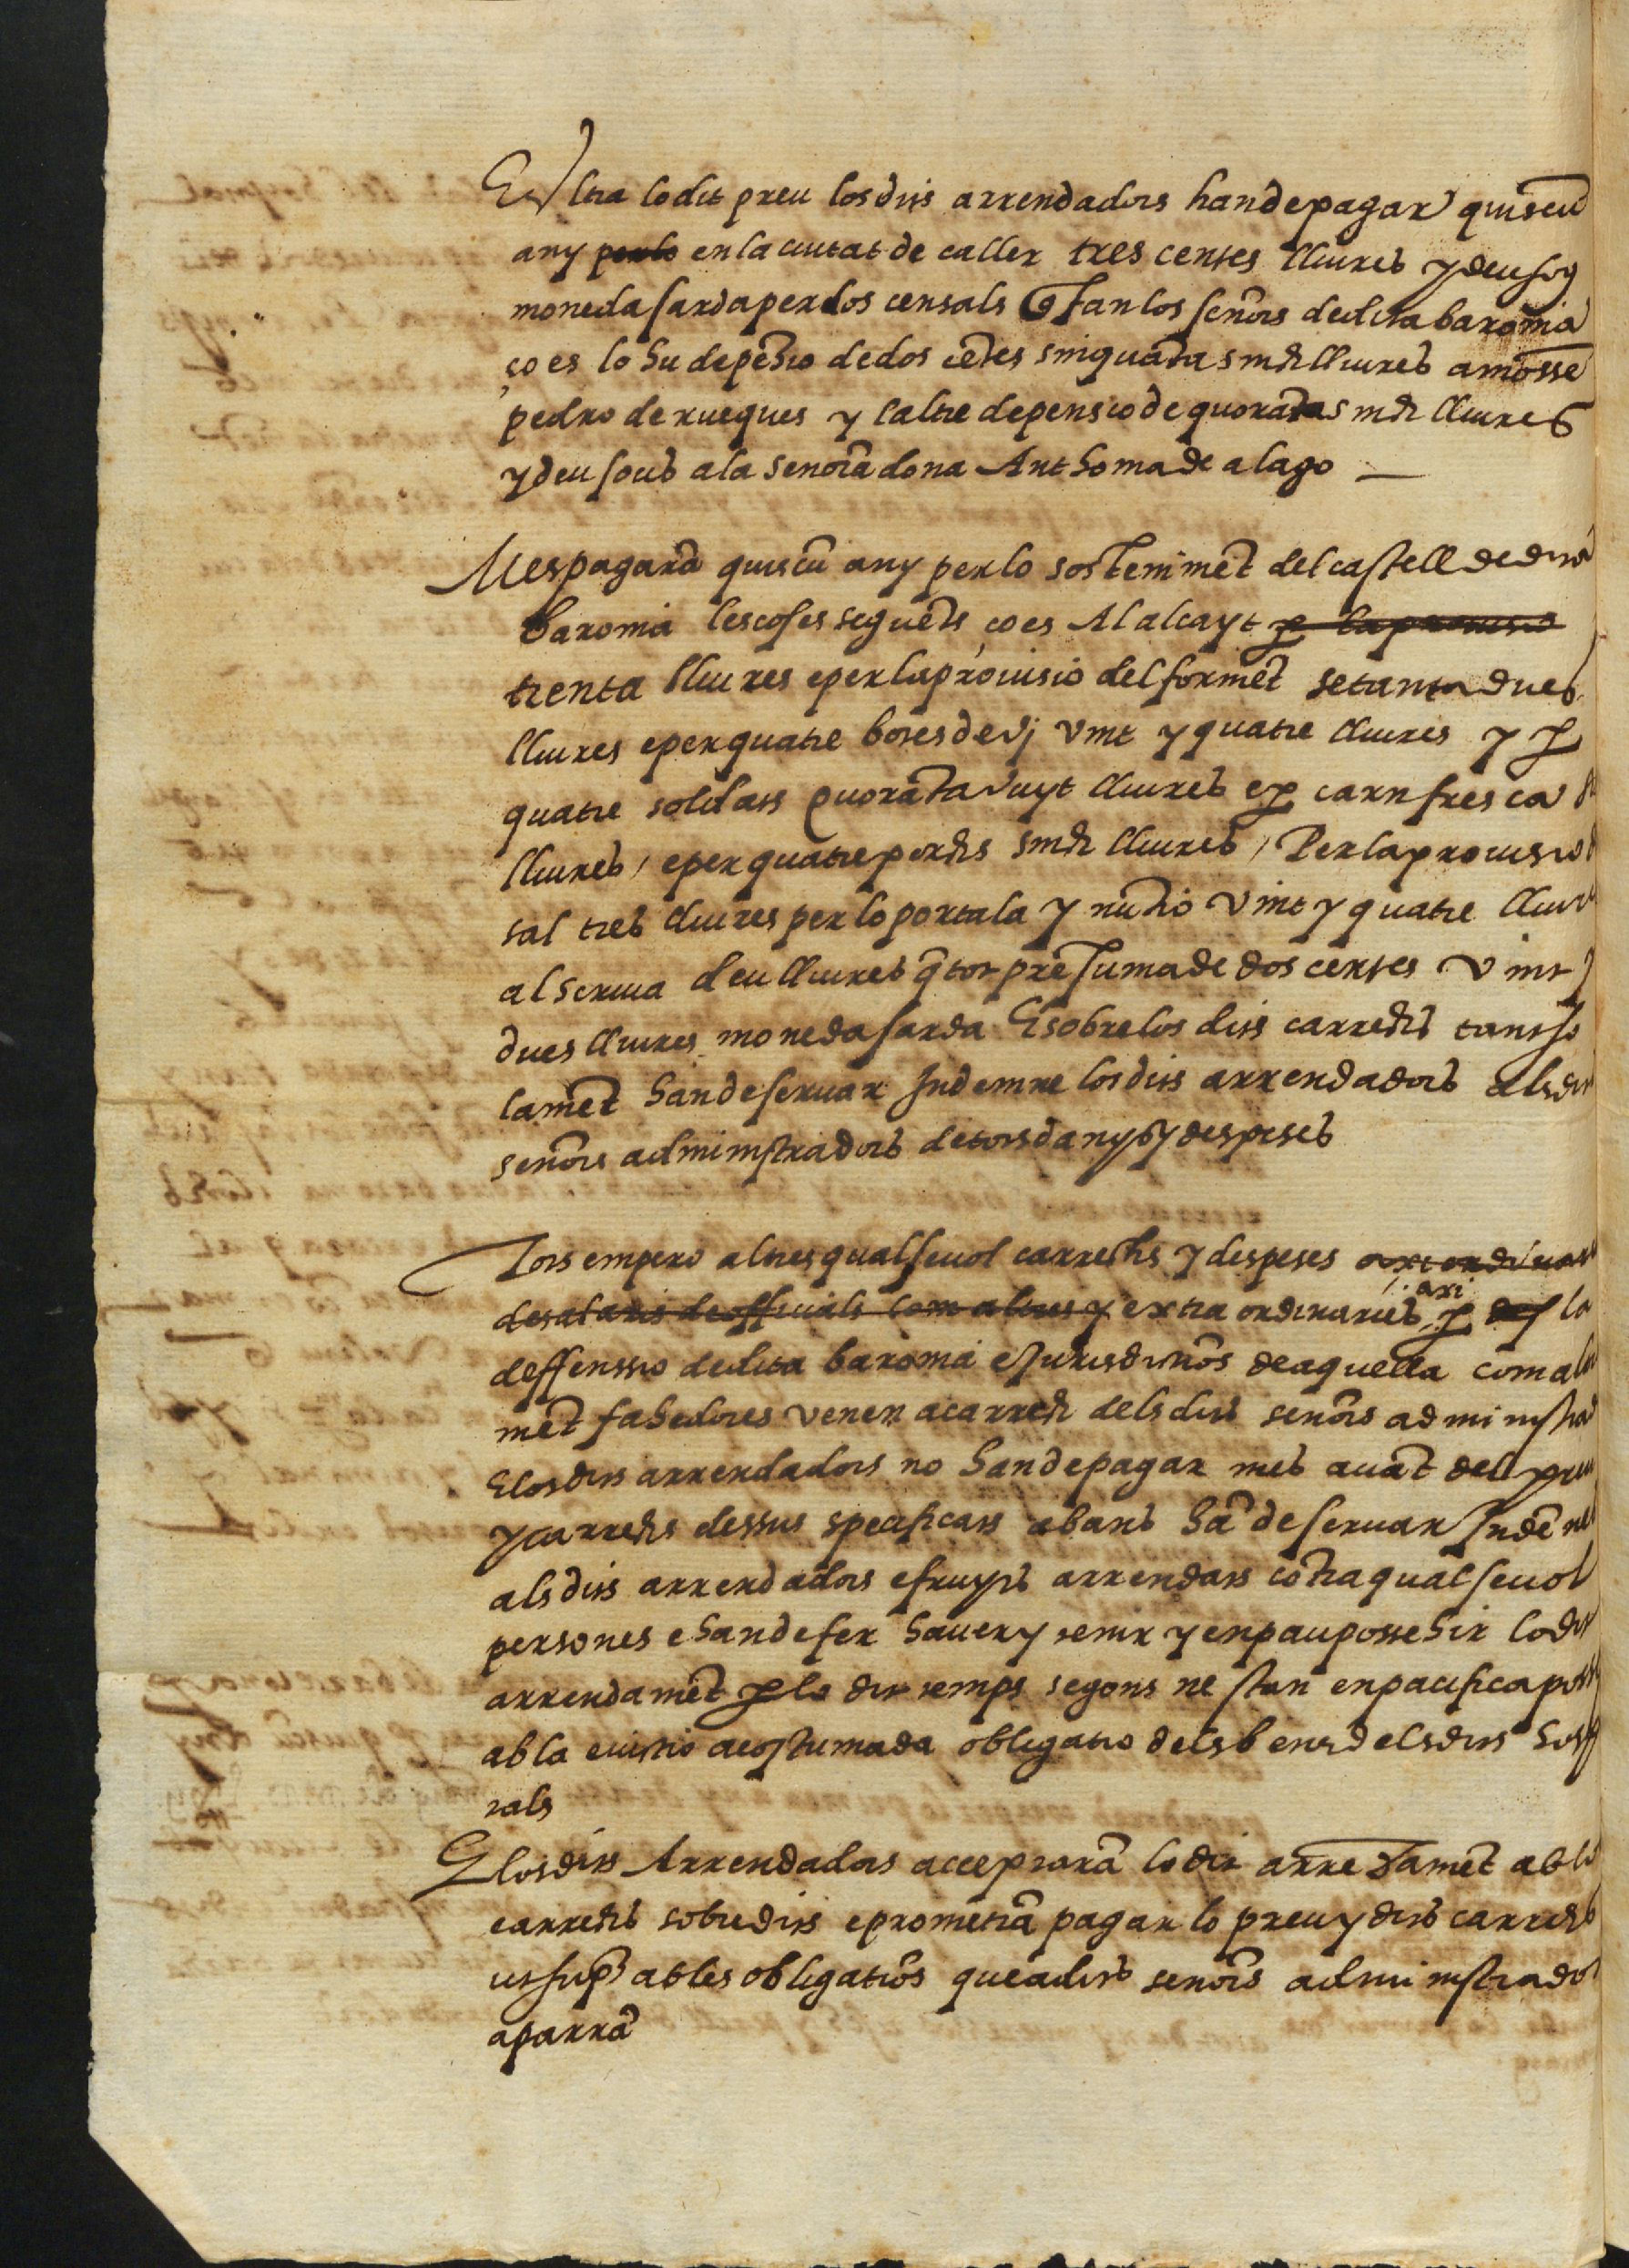 E ultra lo dit preu los dits arrendadors han de pagar quiscu
any perlo en la ciutat de caller tres centes lliures y deu sos
moneda sarda per dos censals q̃ fan los señors de dita baronia
ço es lo hu de pẽsio de dos cẽtes sinquãta sinch lliures a mossẽ
pedro de ruegues y laltre de pensio de quorãta sinch lliures
y deu sous ala senorã dona Anthonia de alago
Mes pagarã quiscũ any per lo sostenimẽt del castell de dita
baronia les coses seguẽts ço es Al alcayt p la prouisio
trenta lliures e per la prouisio del formẽt setanta dues
lliures e per quatre botes de vj vint y quatre lliures y p
quatre soldats quorãta vuyt lliures e p carn fresca
lliures / e per quatre porchs sinch lliures / Per la prouisio d
sal tres lliures per lo portala y nũcio vint y quatre lliur
al scriua deu lliures q̃ tot prẽ suma de dos centes vint y
dues lliures moneda sarda E sobre los dits carrechs tant so
lamẽt han de seruar Indemne los dits arrendadors als dits
señors administradors de tots danys y despeses
Tots empero altres qualseuol carrechs y despeses extraordinari
de salaris de officials com altres y extra ordinaries / axi p des la
deffenssio de dita baronia e Jurisdictiõs de aquella com altra
mẽt fahedores venen a carrech dels dits señors administrad
E los dits arrendadors no han de pagar mes auãt del preu
y carrechs dessus specificats abans hã de seruar Indẽnes
als dits arrendadors e fruyts arrendats cõtra qualseuol
persones e han de fer hauer y tenir y en pau possehir lo dit
arrendamẽt p lo dit temps segons ne stan en pacifica poss
ab la euictio acostumada obligatio dels bens dels dits Hospi
tals
E los dits Arrendadors acceptarã lo dit arredamẽt ab lo
carrechs sobredits e prometrã pagar lo preu y dits carrechs
ut supᵃ ab les obligatiõs que a dits señors administrador
aparrã